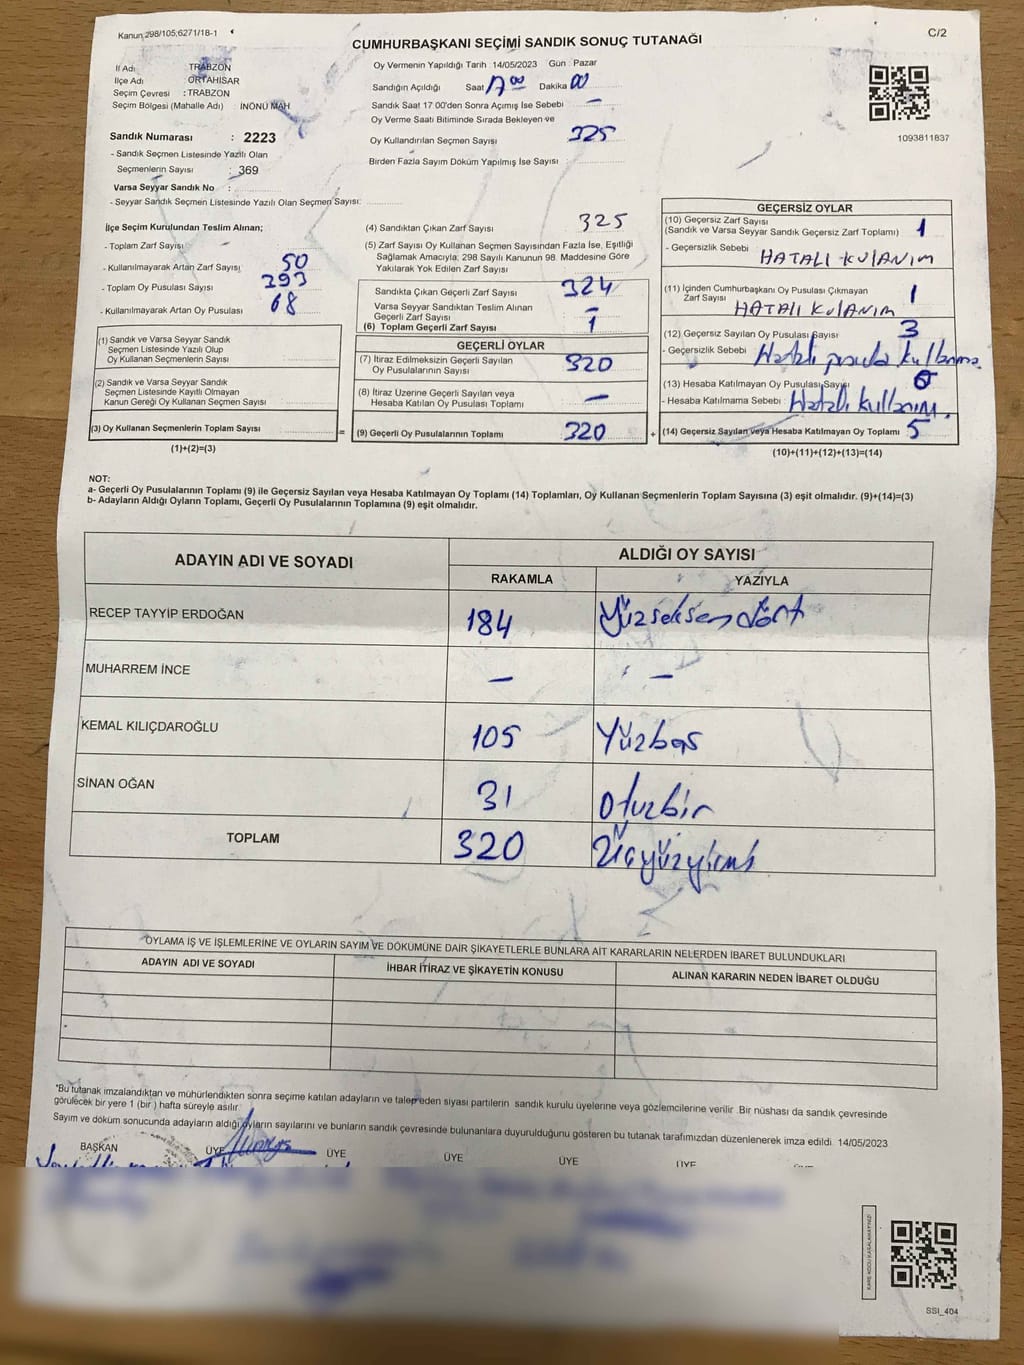 Kanun 298/105;6271/18-1
C/2
CUMHURBAŞKANI SEÇİMİ SANDIK SONUÇ TUTANAĞI
İl Adı : TRABZON
İlçe Adı : ORTAHİSAR
Seçim Çevresi : TRABZON
Seçim Bölgesi (Mahalle Adı) : İNÖNÜ MAH
Sandık Numarası : 2223
- Sandık Seçmen Listesinde Yazılı Olan
Seçmenlerin Sayısı : 369
Varsa Seyyar Sandık No :
- Seyyar Sandık Seçmen Listesinde Yazılı Olan Seçmen Sayısı:
Oy Vermenin Yapıldığı Tarih 14/05/2023 Gün : Pazar
Sandığın Açıldığı Saat 17 00 Dakika 00
Sandık Saat 17 00'den Sonra Açımış İse Sebebi –
Oy Verme Saati Bitiminde Sırada Bekleyen ve
Oy Kullandırılan Seçmen Sayısı 325
Birden Fazla Sayım Döküm Yapılmış İse Sayısı
1093811837
İlçe Seçim Kurulundan Teslim Alınan;
- Toplam Zarf Sayısı
- Kullanılmayarak Artan Zarf Sayısı 50
- Toplam Oy Pusulası Sayısı 393
- Kullanılmayarak Artan Oy Pusulası 68
(1) Sandık ve Varsa Seyyar Sandık
Seçmen Listesinde Yazılı Olup
Oy Kullanan Seçmenlerin Sayısı
(2) Sandık ve Varsa Seyyar Sandık
Seçmen Listesinde Kayıtlı Olmayan
Kanun Gereği Oy Kullanan Seçmen Sayısı
(3) Oy Kullanan Seçmenlerin Toplam Sayısı =
(1)+(2)=(3)
(4) Sandıktan Çıkan Zarf Sayısı 325
(5) Zarf Sayısı Oy Kullanan Seçmen Sayısından Fazla İse, Eşitliği
Sağlamak Amacıyla; 298 Sayılı Kanunun 98. Maddesine Göre
Yakılarak Yok Edilen Zarf Sayısı
Sandıkta Çıkan Geçerli Zarf Sayısı 324
Varsa Seyyar Sandıktan Teslim Alınan
Geçerli Zarf Sayısı –
(6) Toplam Geçerli Zarf Sayısı 1
GEÇERLİ OYLAR
(7) İtiraz Edilmeksizin Geçerli Sayılan
Oy Pusulalarının Sayısı 320
(8) İtiraz Üzerine Geçerli Sayılan veya
Hesaba Katılan Oy Pusulası Toplamı –
(9) Geçerli Oy Pusulalarının Toplamı 320 +
GEÇERSİZ OYLAR
(10) Geçersiz Zarf Sayısı
(Sandık ve Varsa Seyyar Sandık Geçersiz Zarf Toplamı) 1
- Geçersizlik Sebebi HATALI KULANIM
(11) İçinden Cumhurbaşkanı Oy Pusulası Çıkmayan
Zarf Sayısı 1
HATALI KULANIM
(12) Geçersiz Sayılan Oy Pusulası Sayısı 3
- Geçersizlik Sebebi Hatalı pusula kullanma
(13) Hesaba Katılmayan Oy Pusulası Sayısı
- Hesaba Katılmama Sebebi Hatalı kullanım.
(14) Geçersiz Sayılan veya Hesaba Katılmayan Oy Toplamı : 5
(10)+(11)+(12)+(13)=(14)
NOT:
a- Geçerli Oy Pusulalarının Toplamı (9) ile Geçersiz Sayılan veya Hesaba Katılmayan Oy Toplamı (14) Toplamları, Oy Kullanan Seçmenlerin Toplam Sayısına (3) eşit olmalıdır. (9)+(14)=(3)
b- Adayların Aldığı Oyların Toplamı, Geçerli Oy Pusulalarının Toplamına (9) eşit olmalıdır.
ADAYIN ADI VE SOYADI
ALDIĞI OY SAYISI
RAKAMLA YAZIYLA
RECEP TAYYİP ERDOĞAN 184 Yüzseksendört
MUHARREM İNCE – –
KEMAL KILIÇDAROĞLU 105 Yüzbeş
SİNAN OĞAN 31 otuzbir
TOPLAM 320 Üçyüzyirmi
OYLAMA İŞ VE İŞLEMLERİNE VE OYLARIN SAYIM VE DÖKÜMÜNE DAİR ŞİKAYETLERLE BUNLARA AİT KARARLARIN NELERDEN İBARET BULUNDUKLARI
ADAYIN ADI VE SOYADI İHBAR İTİRAZ VE ŞİKAYETİN KONUSU ALINAN KARARIN NEDEN İBARET OLDUĞU
*Bu tutanak imzalandıktan ve mühürlendikten sonra seçime katılan adayların ve talep eden siyasi partilerin sandık kurulu üyelerine veya gözlemcilerine verilir. Bir nüshası da sandık çevresinde
görülecek bir yere 1 (bir) hafta süreyle asılır.
Sayım ve döküm sonucunda adayların aldığı oyların sayılarını ve bunların sandık çevresinde bulunanlara duyurulduğunu gösteren bu tutanak tarafımızdan düzenlenerek imza edildi. 14/05/2023
BAŞKAN ÜYE ÜYE ÜYE ÜYE ÜYE
SSI_404